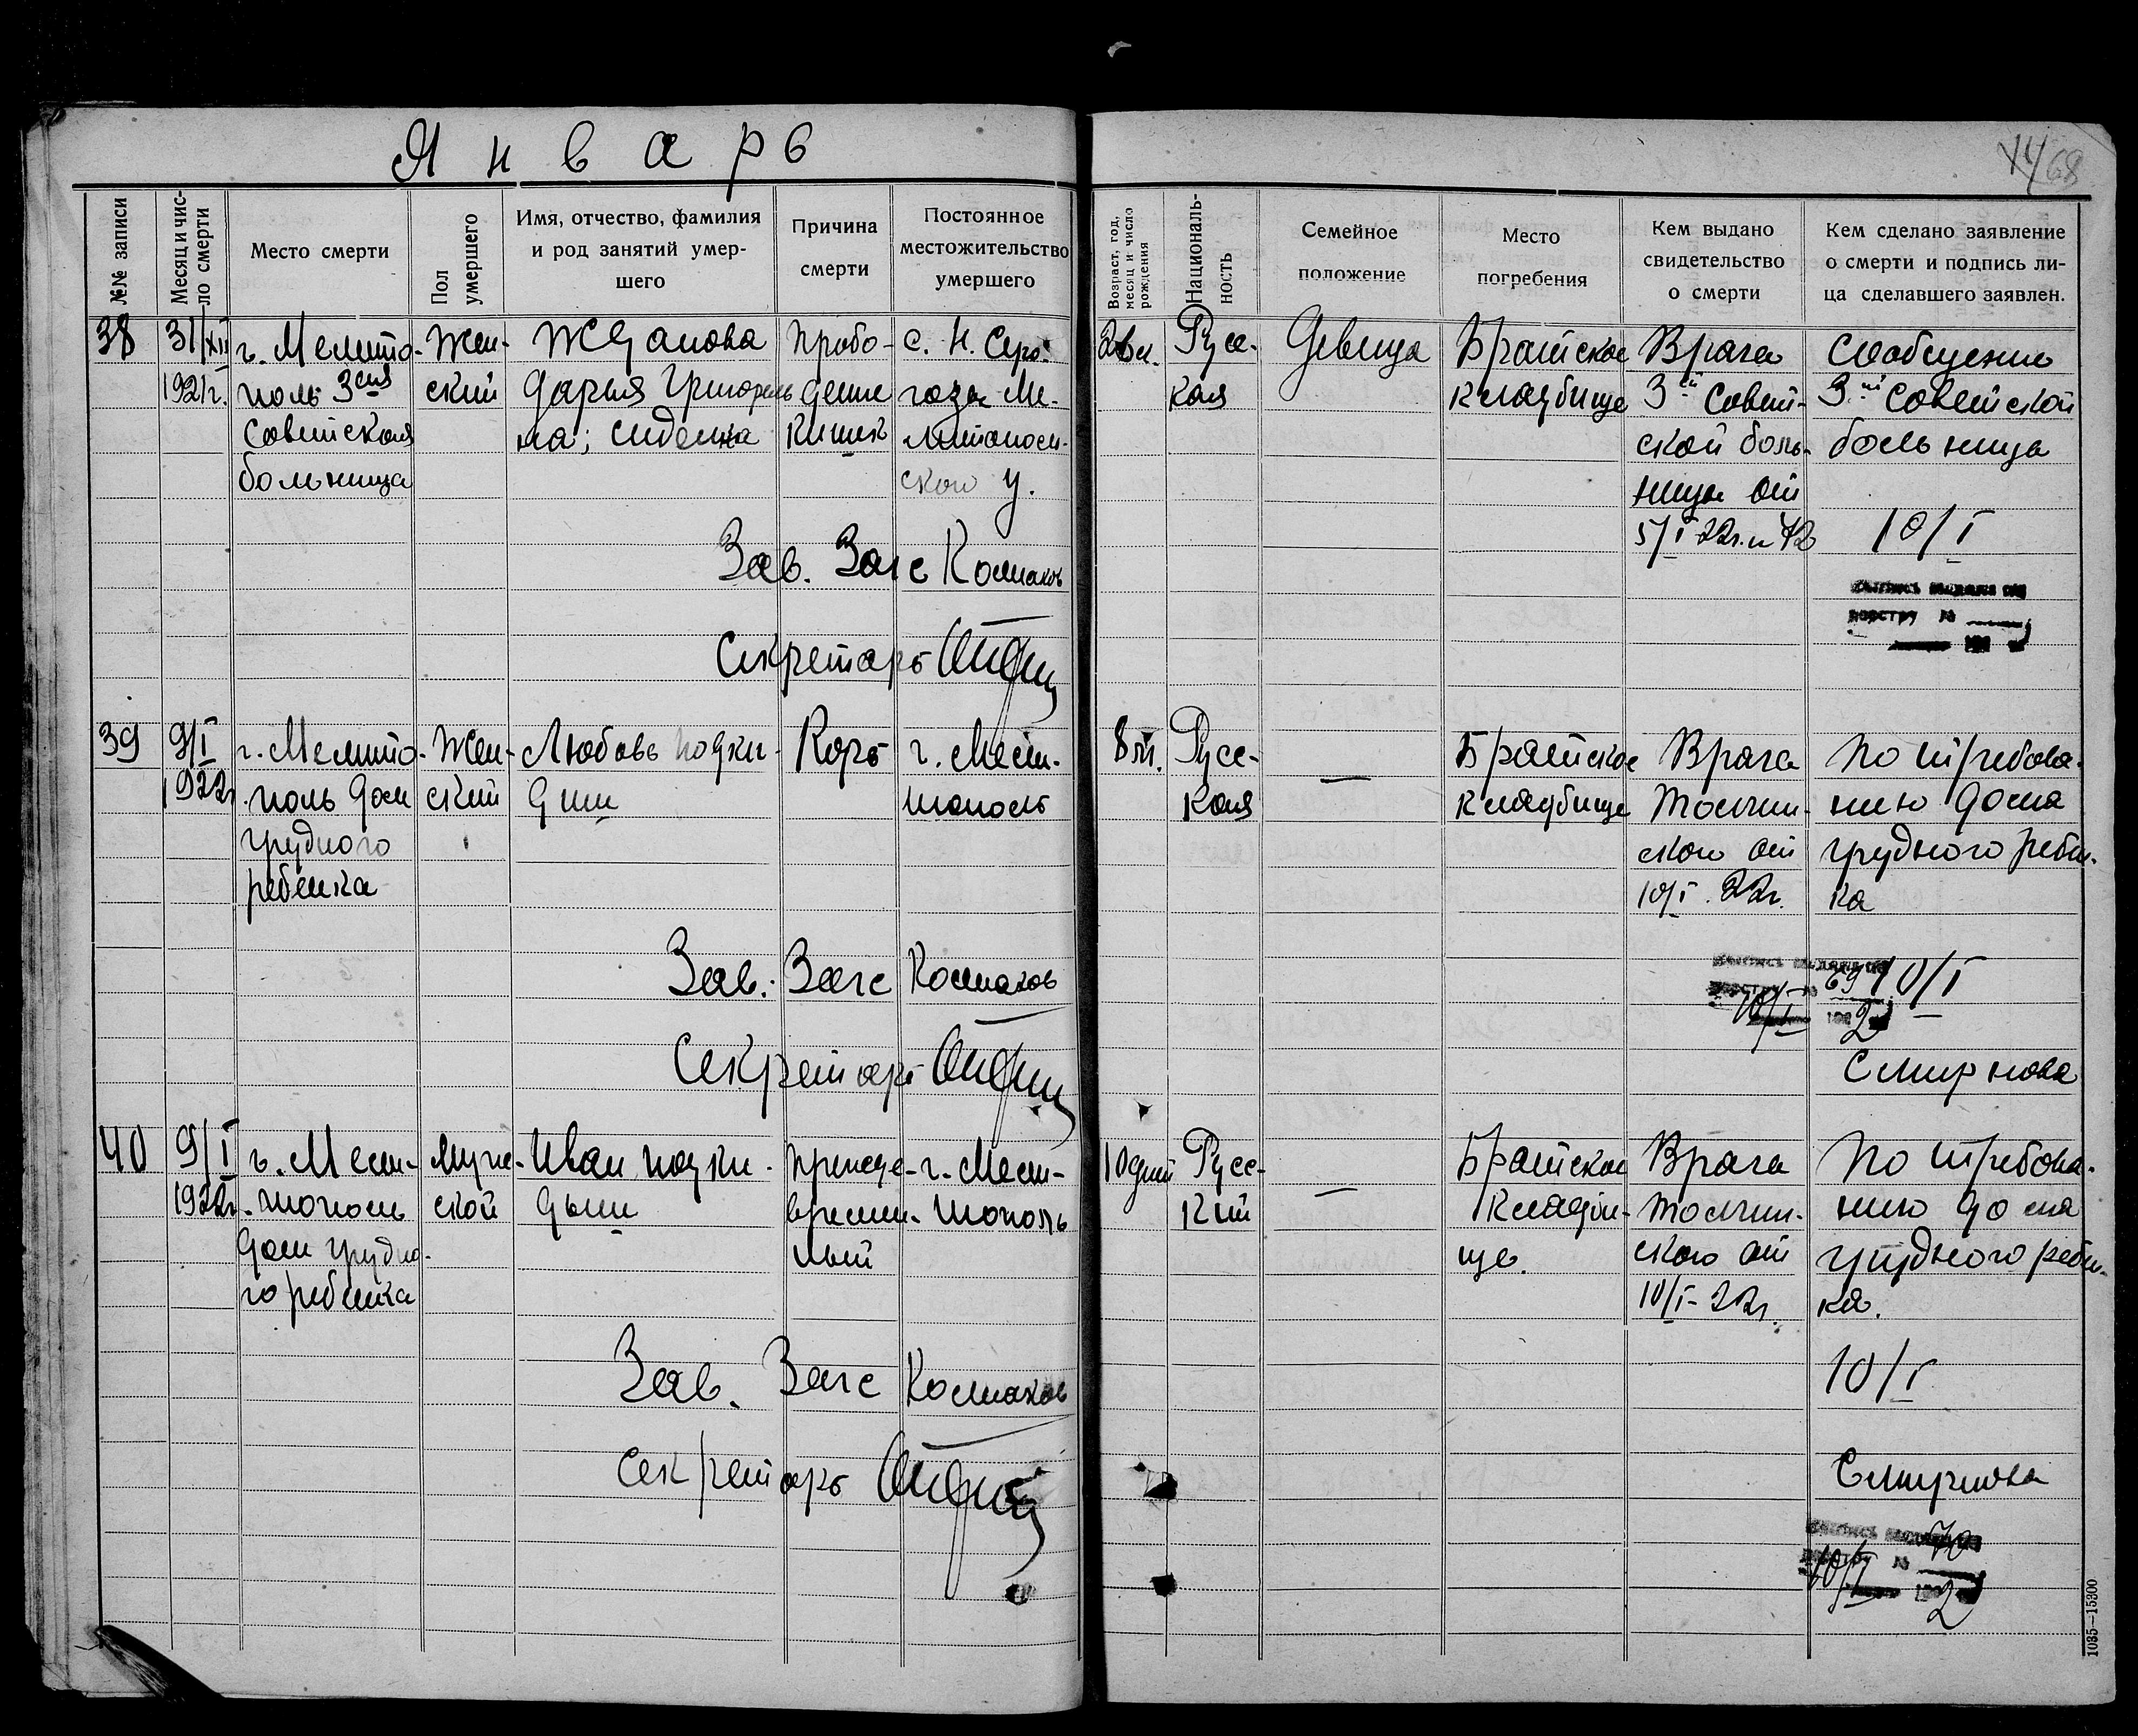 Январь
68
№№ записи
Месяц и чис-
ло смерти
Место смерти
Пол
умершего
Имя, отчество, фамилия
и род занятий умер-
шего
Причина
смерти
Постоянное
местожительство
умершего
Возраст, год,
месяц и число
рождения
Националь-
ность
Семейное
положение
Место
погребения
Кем выдано
свидетельство
о смерти
Кем сделано заявление
о смерти и подпись ли-
ца сделавшего заявлен.
38
31/XII
1921г.
г. Мелито-
поль 3ья
Советская
больница
Жен-
ский
Жданова
Дарья Григорьев-
на; сиделка
Пробо-
дение
кишек
с. Н. Серо-
гозы Ме-
литополь-
ского у.
Русс-
кая
Девица
Братское
кладбище
Врача
3ей Совет-
ской боль-
ницы от
5/I 22г. № 42
Сообщение
3ей Советской
больницы
10/I
Зав. Загс Колпаков
Секретарь
39
9/I
1922г.
г. Мелито-
поль Дом
грудного
ребенка
Жен-
ский
Любовь подки-
дыш
Корь
г. Мели-
тополь
8 м.
Русс-
кая
—
Братское
кладбище
Врача
Толчин-
ского от
10/I. 22г.
По требова-
нию дома
грудного ребен-
ка
69
10/I
10/I
2
Смирнова
Зав. Загс Колпаков
Секретарь
40
9/I
1922г.
г. Мели-
тополь
Дом грудно-
го ребенка
Муж-
ской
Иван подки-
дыш
Прежде-
времен-
ный
г. Мели-
тополь
10 дней
Русс-
кий
—
Братское
кладби-
ще.
Врача
Толчин-
ского от
10/I-22г.
По требова-
нию дома
грудного ребен-
ка.
10/I
Смирнова
70
10/I
2
Зав. Загс Колпаков
Секретарь
1035—15300